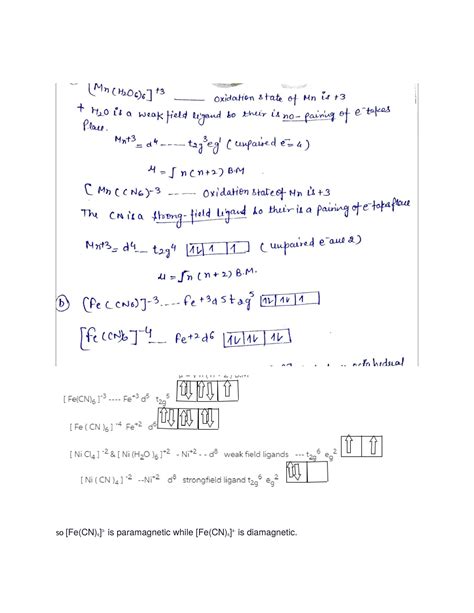 [Mn(H2O6)6]+3 ___ Oxidation state of Mn is +3
+ H2O is a weak field ligand so their is no-pairing of e- takes
Place.
Mn+3 = d4 --- t2g3 eg1 (unpaired e- = 4)
μ = √n(n+2) B.M
[Mn(CN6)-3 ---- Oxidation state of Mn is +3
The CN is a strong-field ligand so their is a pairing of e- takes place
Mn+3 = d4 --- t2g4 [1↓|1|1] (unpaired e- are 2)
μ = √n(n+2) B.M.
(b) [Fe(CN6)]-3 .... Fe+3 d5 t2g5 [1↓|1↓|1]
[Fe(CN)6]-4 ... Fe+2 d6 [1↓|1↓|1↓]
octahedral
[ Fe(CN)6 ]-3 ---- Fe+3 d5 t2g5
[ Fe ( CN )6 ] -4 Fe+2 d6
[ Ni Cl4 ] -2 & [ Ni (H2O )6 ]+2 - Ni+2 - - d8 weak field ligands --- t2g6 eg2
[ Ni ( CN )4 ] -2 --Ni+2 d8 strongfield ligand t2g6 eg2
so [Fe(CN)6]3- is paramagnetic while [Fe(CN)6]4- is diamagnetic.